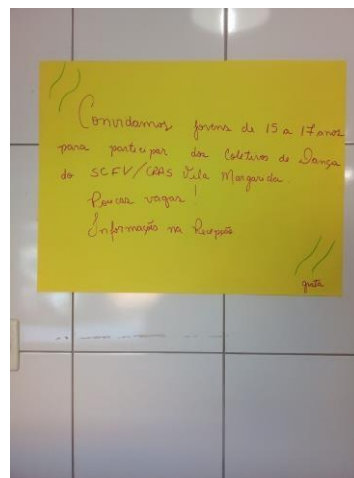 Convidamos jovens de 15 a 17 anos
para participar dos Coletivos de Dança
do SCFV/CRAS Vila Margarida.
Poucas vagas!
Informação na Recepção
gratis